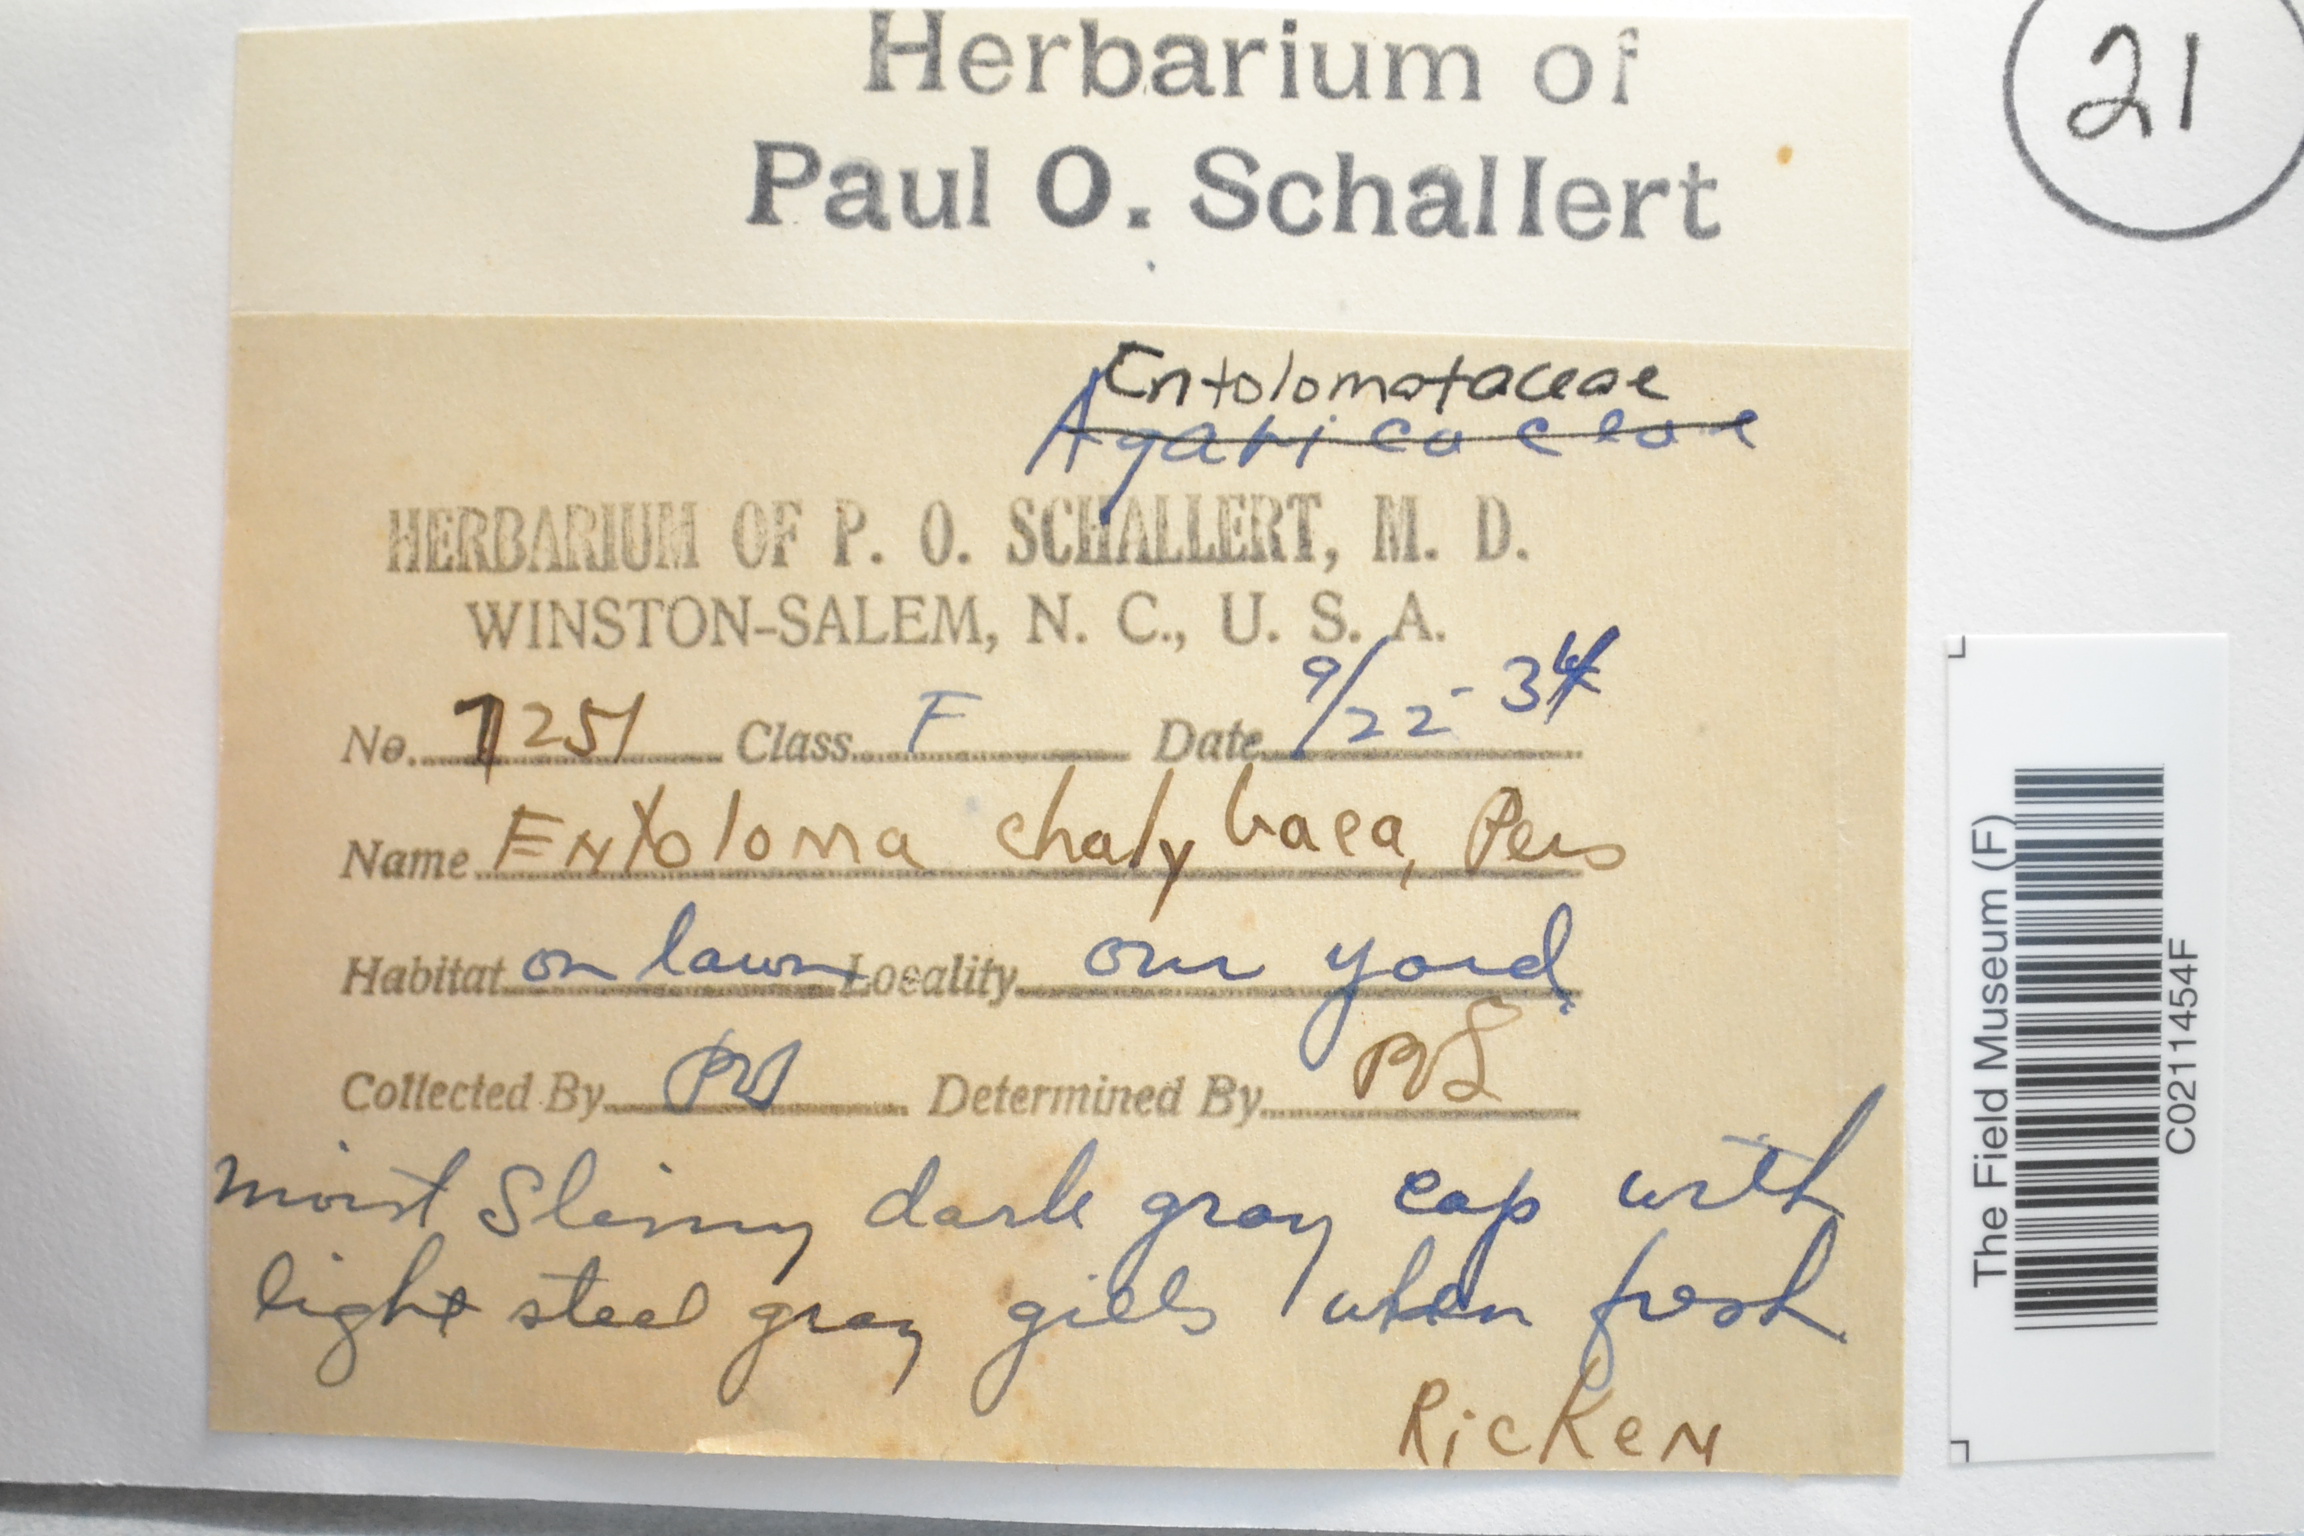 Herbarium of
21
Paul O. Schallert
Entolomataceae
Agaricaceae
HERBARIUM OF P. O. SCHALLERT, M. D.
WINSTON-SALEM, N. C., U. S. A.
No. 7251 Class F Date 9/22-34
Name Entoloma chalybaea, Pers
Habitat on lawn Locality our yard
Collected By Determined By
moist Slimy dark gray cap with
light steel gray gills when fresh
Ricken
The Field Museum (F)
C0211454F